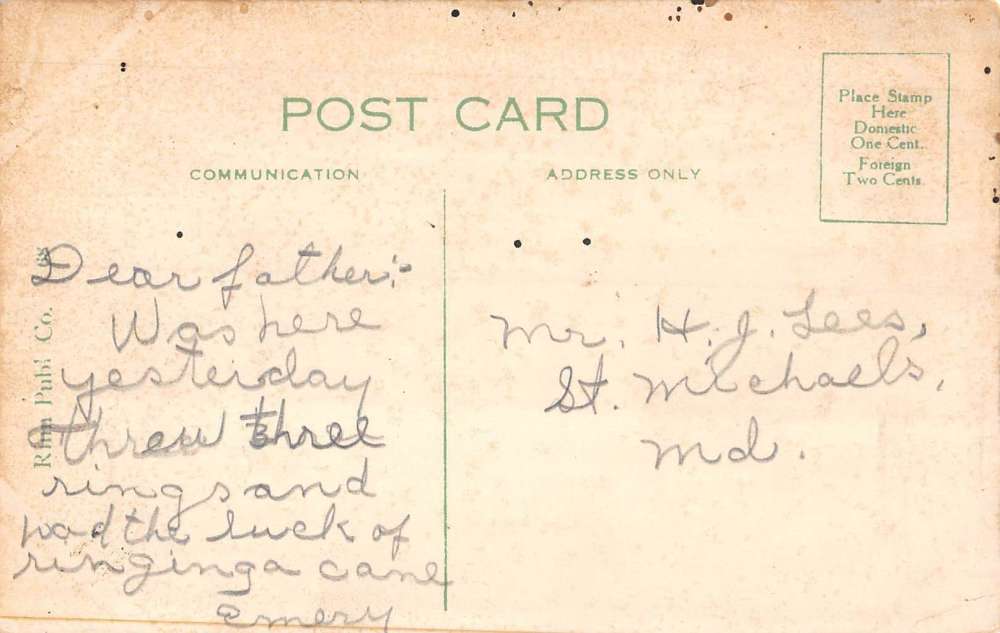 POST CARD
Place Stamp
Here
Domestic
One Cent.
Foreign
Two Cents.
COMMUNICATION
ADDRESS ONLY
Dear father:-
Was here
yesterday
threw three
rings and
had the luck of
ringing a cane
Emery
Mr. H. J. Lees,
St. Michaels,
Md.
Publ Co.